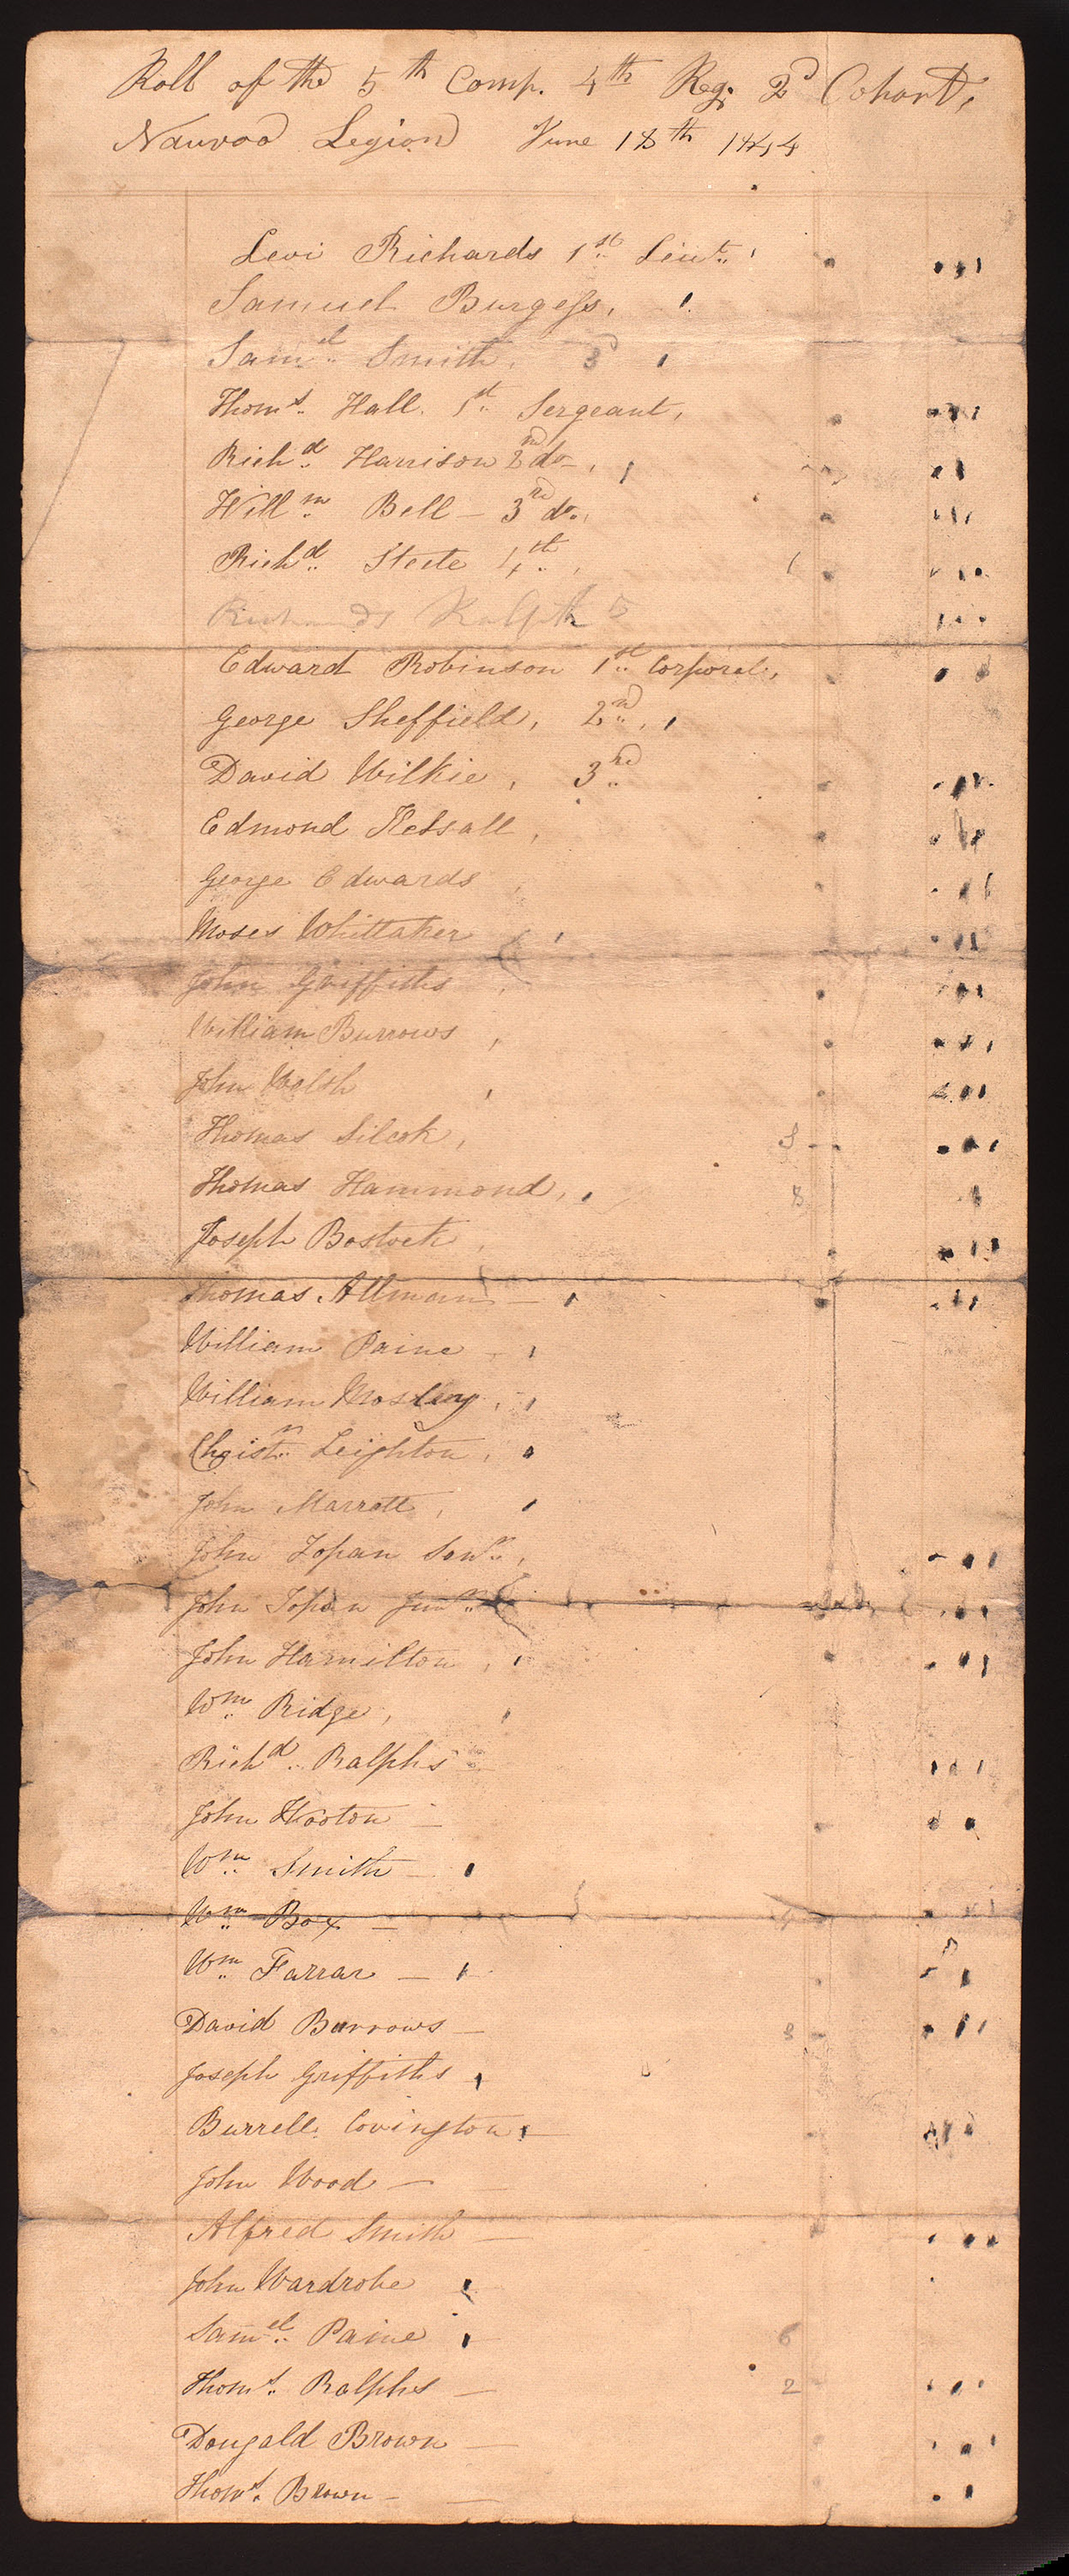 Roll of the 5th Comp. 4th Reg. 2d Cohort,
Nauvoo Legion June 18th 1844
Levi Richards 1st Lieut.
Samuel Burgess,
Saml. Smith, 3d
Thoms. Hall. 1st Sergeant,
Richd. Harrison 2nd do
Willm. Bell – 3rd do.
Richd. Steele 4th 1
Richards Ralph 5
Edward Robinson 1st Corporal,
George Sheffield, 2nd
David Wilkie, 3rd
Edmond Kelsall,
George Edwards
Moses Whittaker
John Griffiths
William Burrows
John Walsh
Thomas Silcock, 3
Thomas Hammond, 8
Joseph Bostock
Thomas Altman
William Paine
William Mosley
Christr. Leighton
John Marrott,
John Topan Senr.
John Topan Junr.
John Hamilton
Wm. Ridge,
Richd. Ralphs
John Hooton –
Wm. Smith
Wm. Box –
Wm. Farrar –
David Burrows – 3
Joseph Griffiths
Burrell Covington
John Wood –
Alfred Smith
John Wardrobe
Samel. Paine 6
Thoms. Ralphs 2
Dougald Brown
Thoms. Brown –